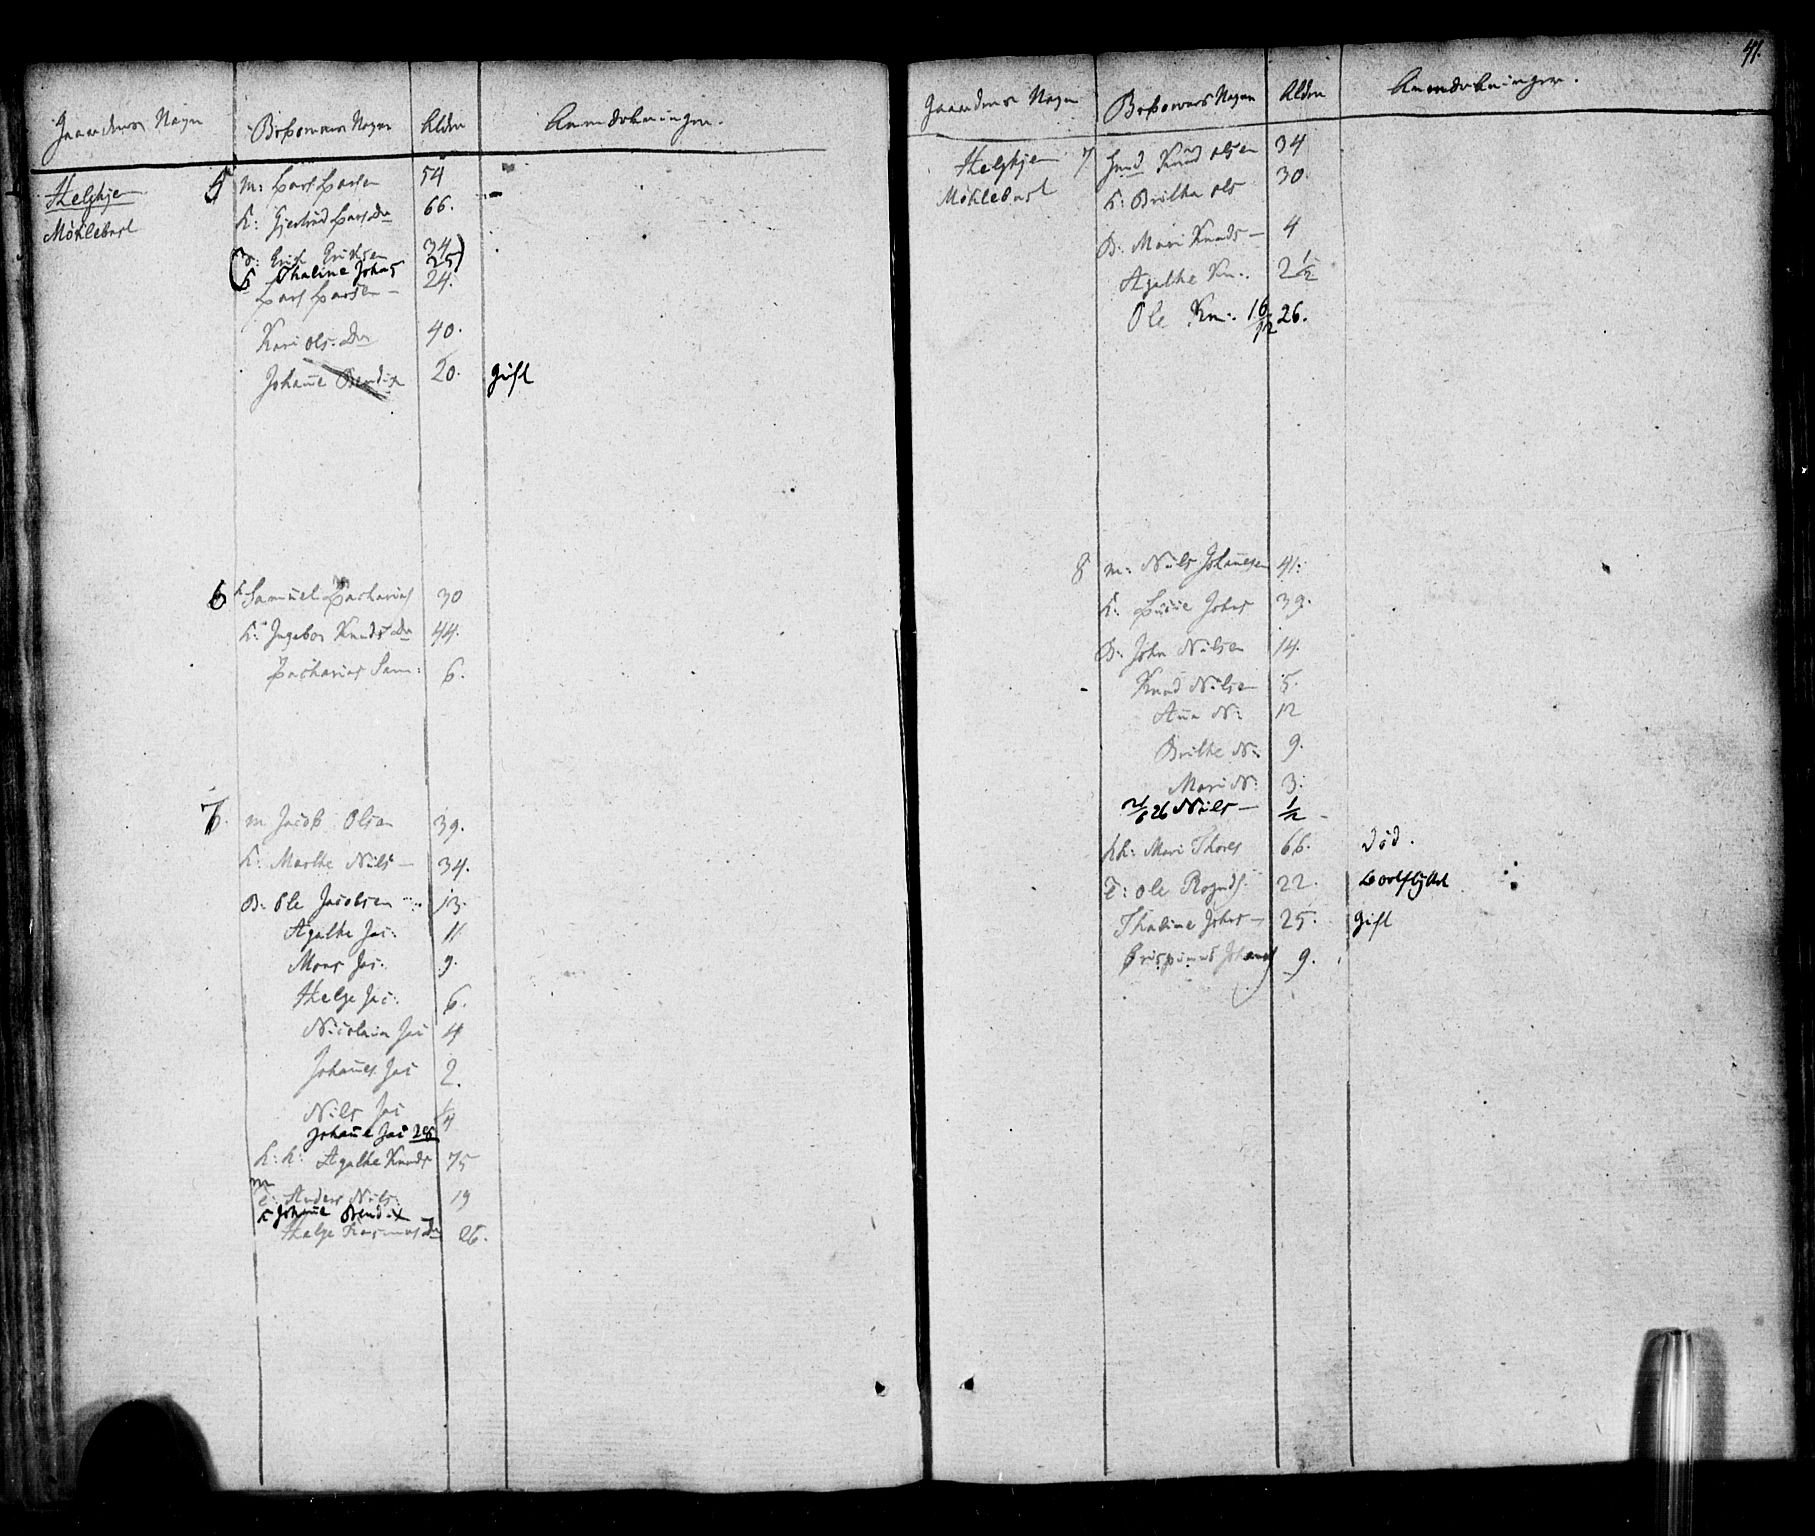 Gaardenes Nagn Beboernes Nagn Alder Anmærkninger.
Helghjem
Møklebust
5 m: Lars Larsen 54
k: Gjertrud Larsdr 66.
(m: Erich Erichsen 34)
k Thaline Johns 25)
Lars Larsen — 24.
Kari Ols. Dr 40.
Johañe Bendix 20. gift
6 Samuel Zacharias 30
k: Ingebor Knuds Dr 44.
Zacharias Sam: 6.
7. m Jacob Olsen 39.
k: Marthe Nils — 34.
B: Ole Jacobsen 13.
Agathe Jac: 11
Mons Jac: 9.
Helge Jac: 6.
Nicolai Jac 4
Johañes Jac 2.
Nils Jac ¼
Johañe Jac 28
k: k: Agathe Knuds 75
m
t: Anders Nils: 19
k Johañe Bendix
Helge Rasmus Dr 26.
41.
Gaardenes Nagn Beboernes Nagn Alder Anmærkninger.
Helghjem
Møklebust
7 Knud Olsen 34
k: Brithe Ols 30.
B: Mari Knuds — 4
Agathe Kn:. 2½
Ole Kn:. 16/12 26.
8 m: Nils Johañesen 41.
k: Johns 39.
B: John Nilsen 14.
Knud Nilsen 5.
Aña N: 12
Brithe N: 9.
Mari N: 3.
21/6 26 Nils — ½
kk: Mari Thores 66. død.
t: Ole Rognds. 22. bortflyttet
Thaline Johns — 25. gift
Crispinus Johans 9.